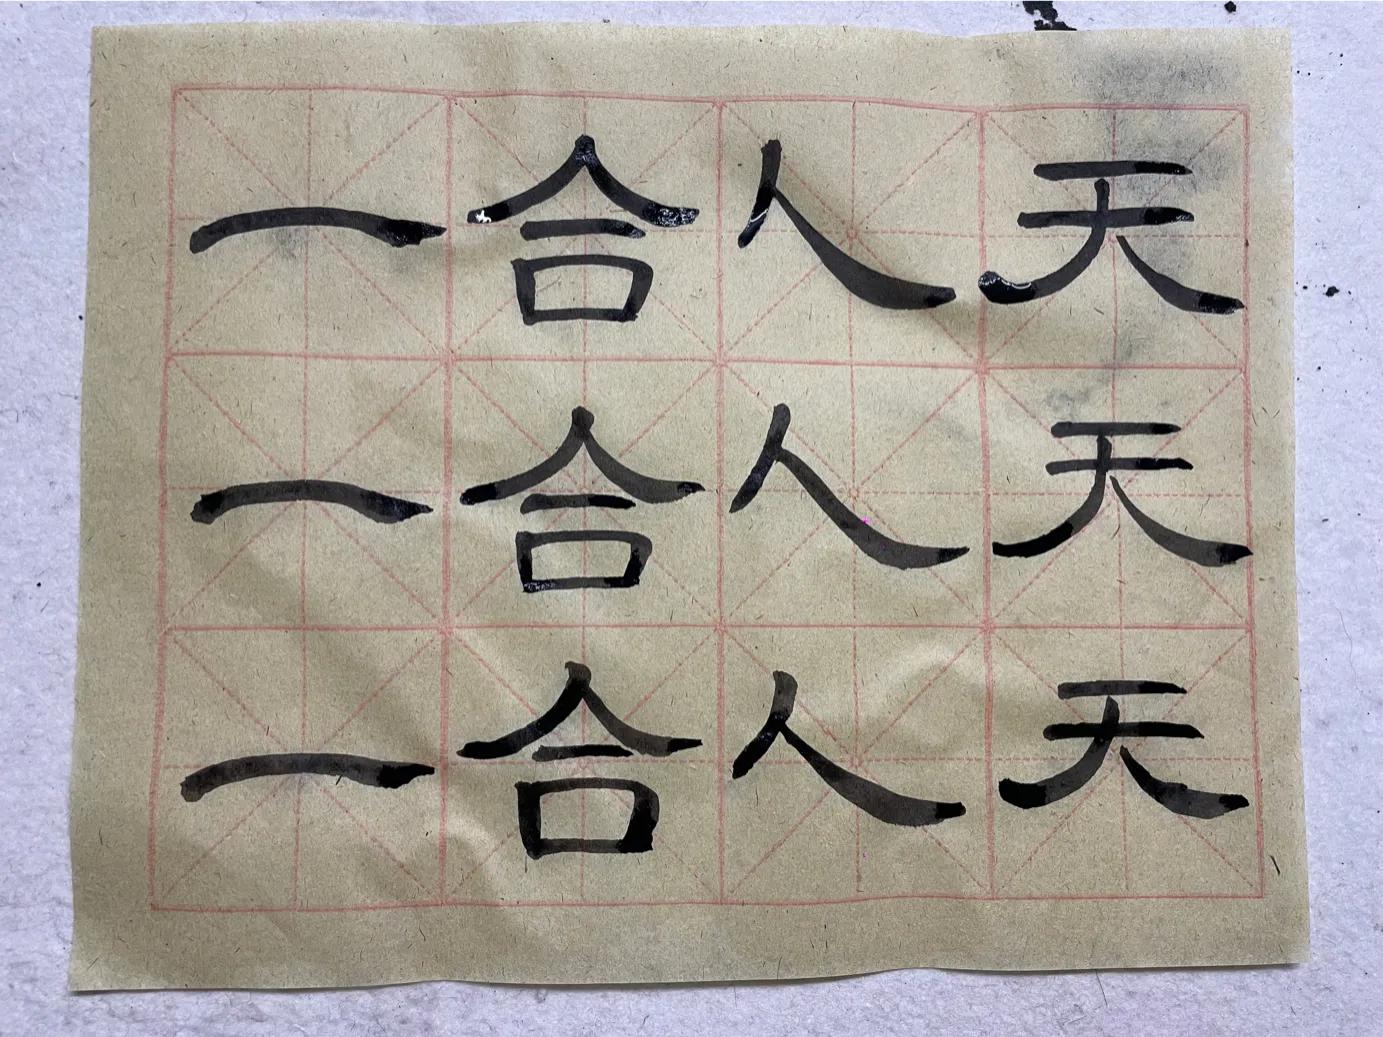 天人合一
天人合一
天人合一